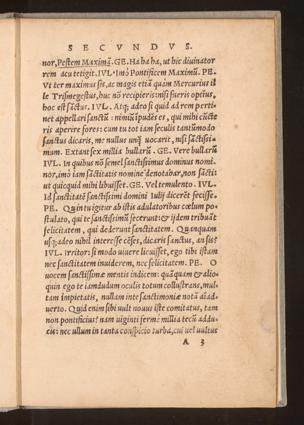 SECVNDVS.
nor, Pestem Maximã. GE. Ha ha ha, ut hic diuinator
rem acu tetigit. IVL. Imò Pontificem Maximũ. PE.
Vt ter maximus sis, ac magis etiã quàm Mercurius il
le Trismegestus, huc nõ recipieris nisi fueris opti⁹,
hoc est sãct⁹. IVL. Atq; adeo si quid ad rem perti
net appellari sanctũ: nimiũ ipudẽs es, qui mihi cũcte
ris aperire fores: cum tu tot iam seculis tantũmodo
sanctus dicaris, me nullus unq̃ uocarit, nisi sãctissi⸗
mum. Extant sex millia bullarũ. GE. Verè bullarũ
IVL. In quibus nõ semel sanctissimus dominus nomi
nor, imò iam sanctitatis nomine denotabar, non sãcti
ut quicquid mihi libuisset. GE. Vel temulento. IVL.
Id sanctitatẽ sanctissimi domini Iulij dicerẽt fecisse.
PE. Quin tu igitur ab istis adulatoribus cœlum po⸗
stulato, qui te sanctissimũ fecerunt: & ijdem tribuãt
felicitatem, qui dederunt sanctitatem. Quanquam
usq; adeo nihil interesse cẽses, dicaris sanctus, an sis?
IVL. Irritor: si modo uiuere licuisset, ego tibi istam
nec sanctitatem inuiderem, nec felicitatem. PE. O
uocem sanctissimæ mentis indicem: quãquam & alio⸗
quin ego te iamdudum oculis totum collustrans, mul⸗
tam impietatis, nullam in te sanctimoniæ notã aĩad⸗
uerto. Quid enim sibi uult nouus iste comitatus, tam
non pontificius? nam uiginti fermè millia tecũ addu⸗
cis: nec ullum in tanta conspicio turba, cui uel uultus
A 3